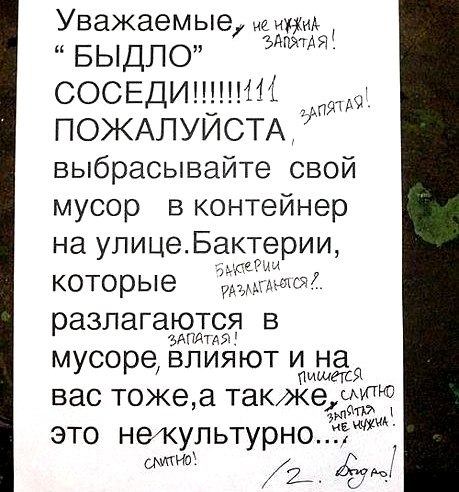 Уважаемые, не нужна
запятая!
“ БЫДЛО”
СОСЕДИ!!!!!!111
ПОЖАЛУЙСТА, запятая!
выбрасывайте свой
мусор в контейнер
на улице.Бактерии,
которые Бактерии
разлагаются?..
разлагаются в
запатая!
мусоре, влияют и на
пишется
вас тоже,а так же, слитно
запятая
не нужна!
это не культурно....
слитно!
/2. Быдло!